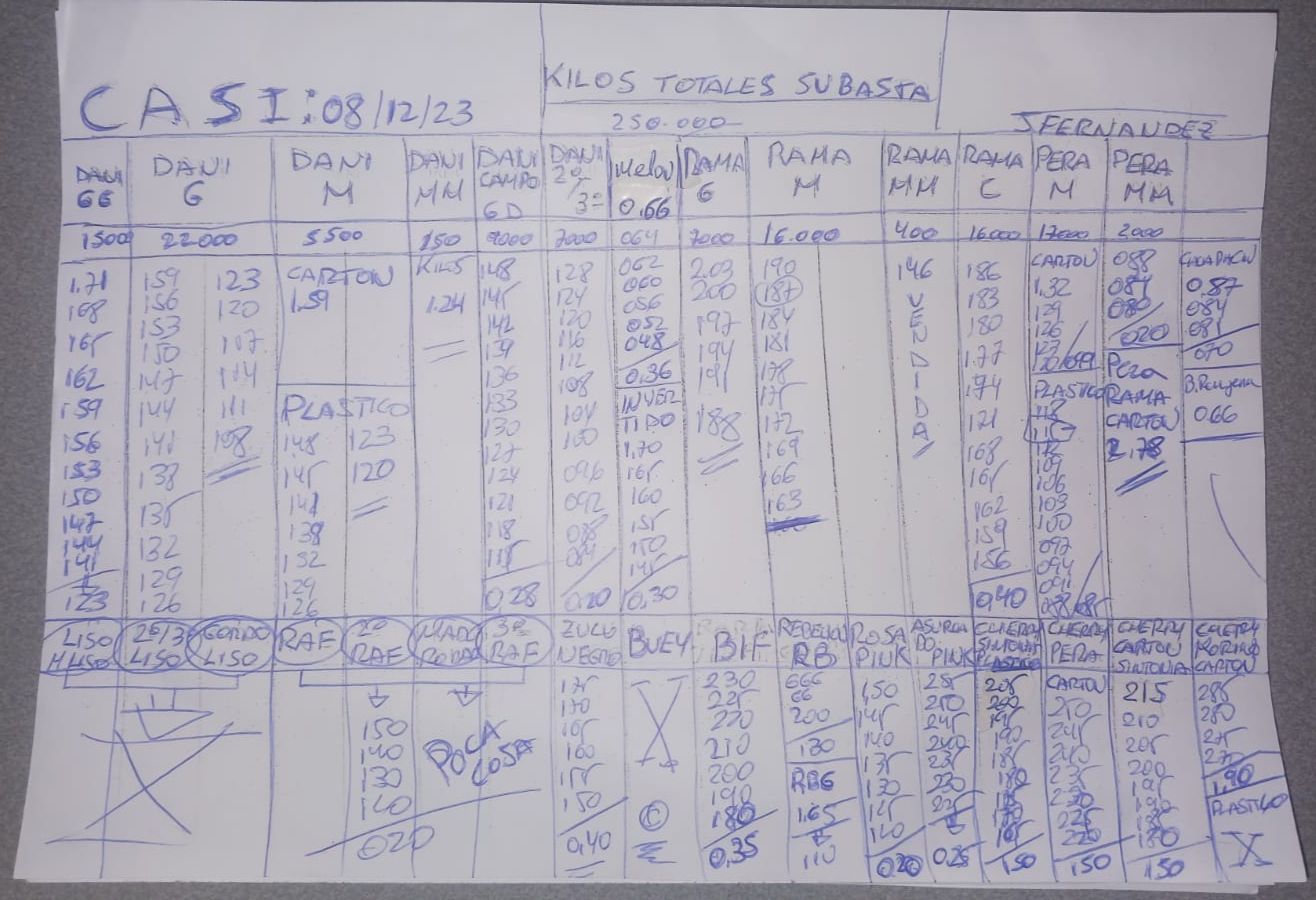 CASI: 08/12/23
KILOS TOTALES SUBASTA
250.000
J FERNANDEZ
DANI GG
DANI G
DANI M
DANI MM
DANI CAMPO GD
DANI 2º/3º
Melon 0.66
RAMA G
RAMA M
RAMA MM
RAMA C
PERA M
PERA MM
1500
22.000
5500
150
9000
7000
064
7000
16.000
400
16.000
17000
2000
1.71
168
165
162
159
156
153
150
147
144
141
123
159
156
153
150
147
144
141
138
135
132
129
126
123
120
117
114
111
108
CARTON
1.59
PLASTICO
148
145
141
138
132
129
126
123
120
KILOS
1.24
148
145
142
139
136
133
130
127
124
121
118
115
0,28
128
124
120
116
112
108
104
100
096
092
088
084
0,20
062
060
056
052
048
0,36
INVER
TIDO
1,70
165
160
155
150
145
0,30
2.03
200
197
194
191
188
190
187
184
181
178
175
172
169
166
163
146
VENDIDA
186
183
180
1.77
174
171
168
165
162
159
156
0,40
CARTON
1.32
129
126
PLASTICO
118
115
112
109
106
103
100
097
094
091
088/085
088
084
080
020
Pera
RAMA
CARTON
2,78
0.87
084
081
070
066
LISO M LISO
2º/3 LISO
GORDO LISO
RAF
2º RAF
3º RAF
ZULU NEGRO
BUEY
BIF
REBELION RB
ROSA PINK
ASURCADO PINK
CHERRY SINTONIA PLASTICO
CHERRY PERA
CHERRY CARTON SINTONIA
CHERRY MORINO CARTON
150
140
130
120
020
POCA COSA
175
170
165
160
155
150
0,40
X
©
230
225
220
210
200
190
180
0,35
666
66
200
130
RBG
1.65
110
1,50
145
140
135
130
0,20
255
250
245
240
235
230
225
0,25
205
200
195
190
185
180
165
1,50
CARTON
250
245
240
235
230
225
220
1,50
215
210
205
200
195
190
185
180
1,50
285
280
275
270
1,90
PLASTICO
X